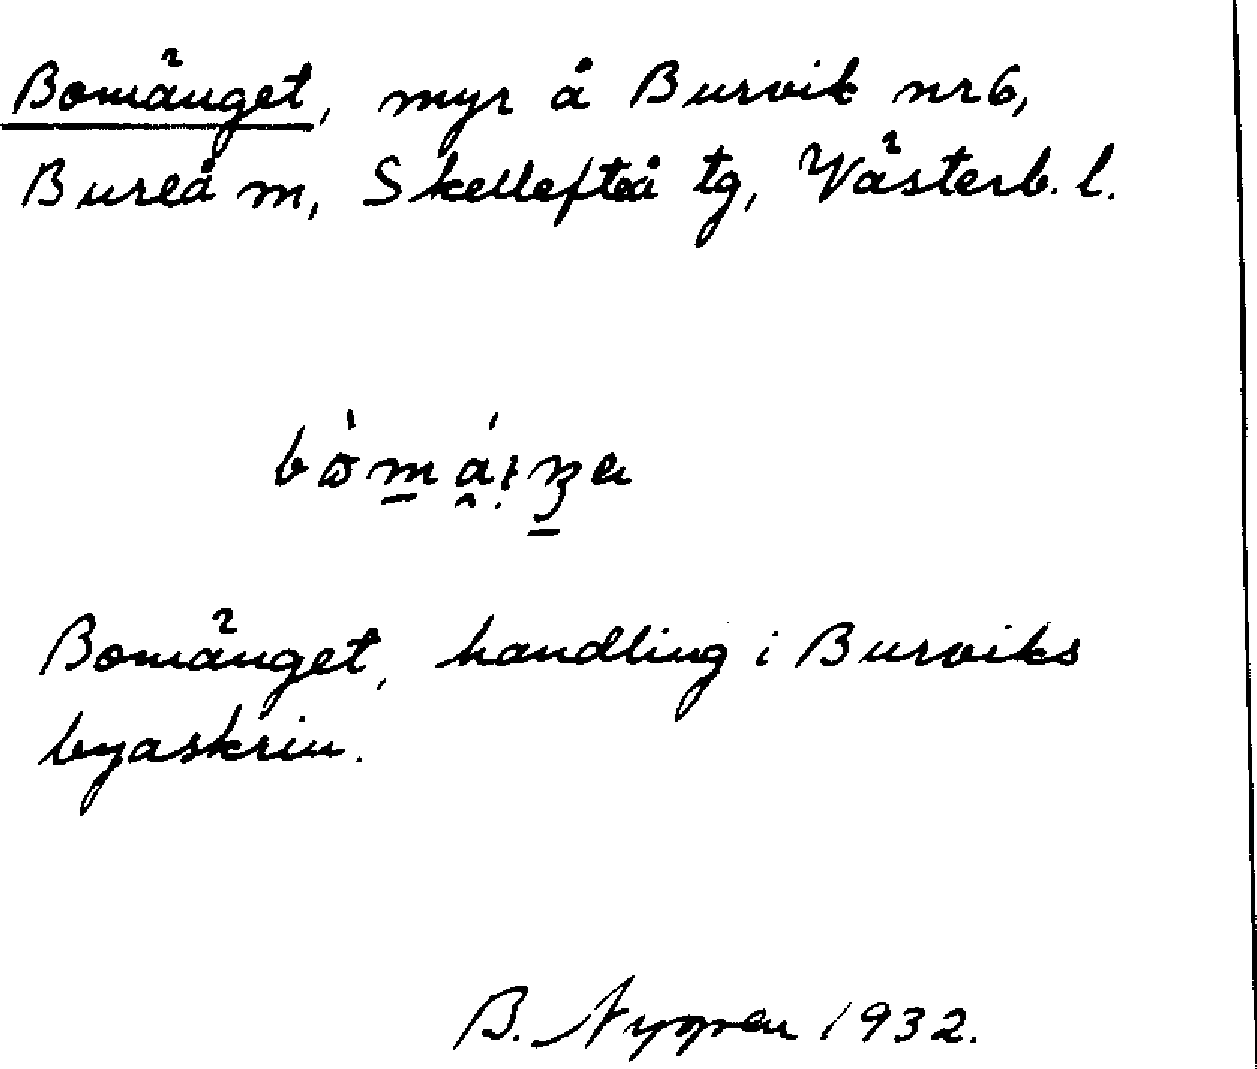 Bomänget, myr å Burvik nr 6,
Bureå m, Skellefteå tg, Västerb. l.
Bomänget, handling i Burviks
byaskrin.
B. Nygren 1932.